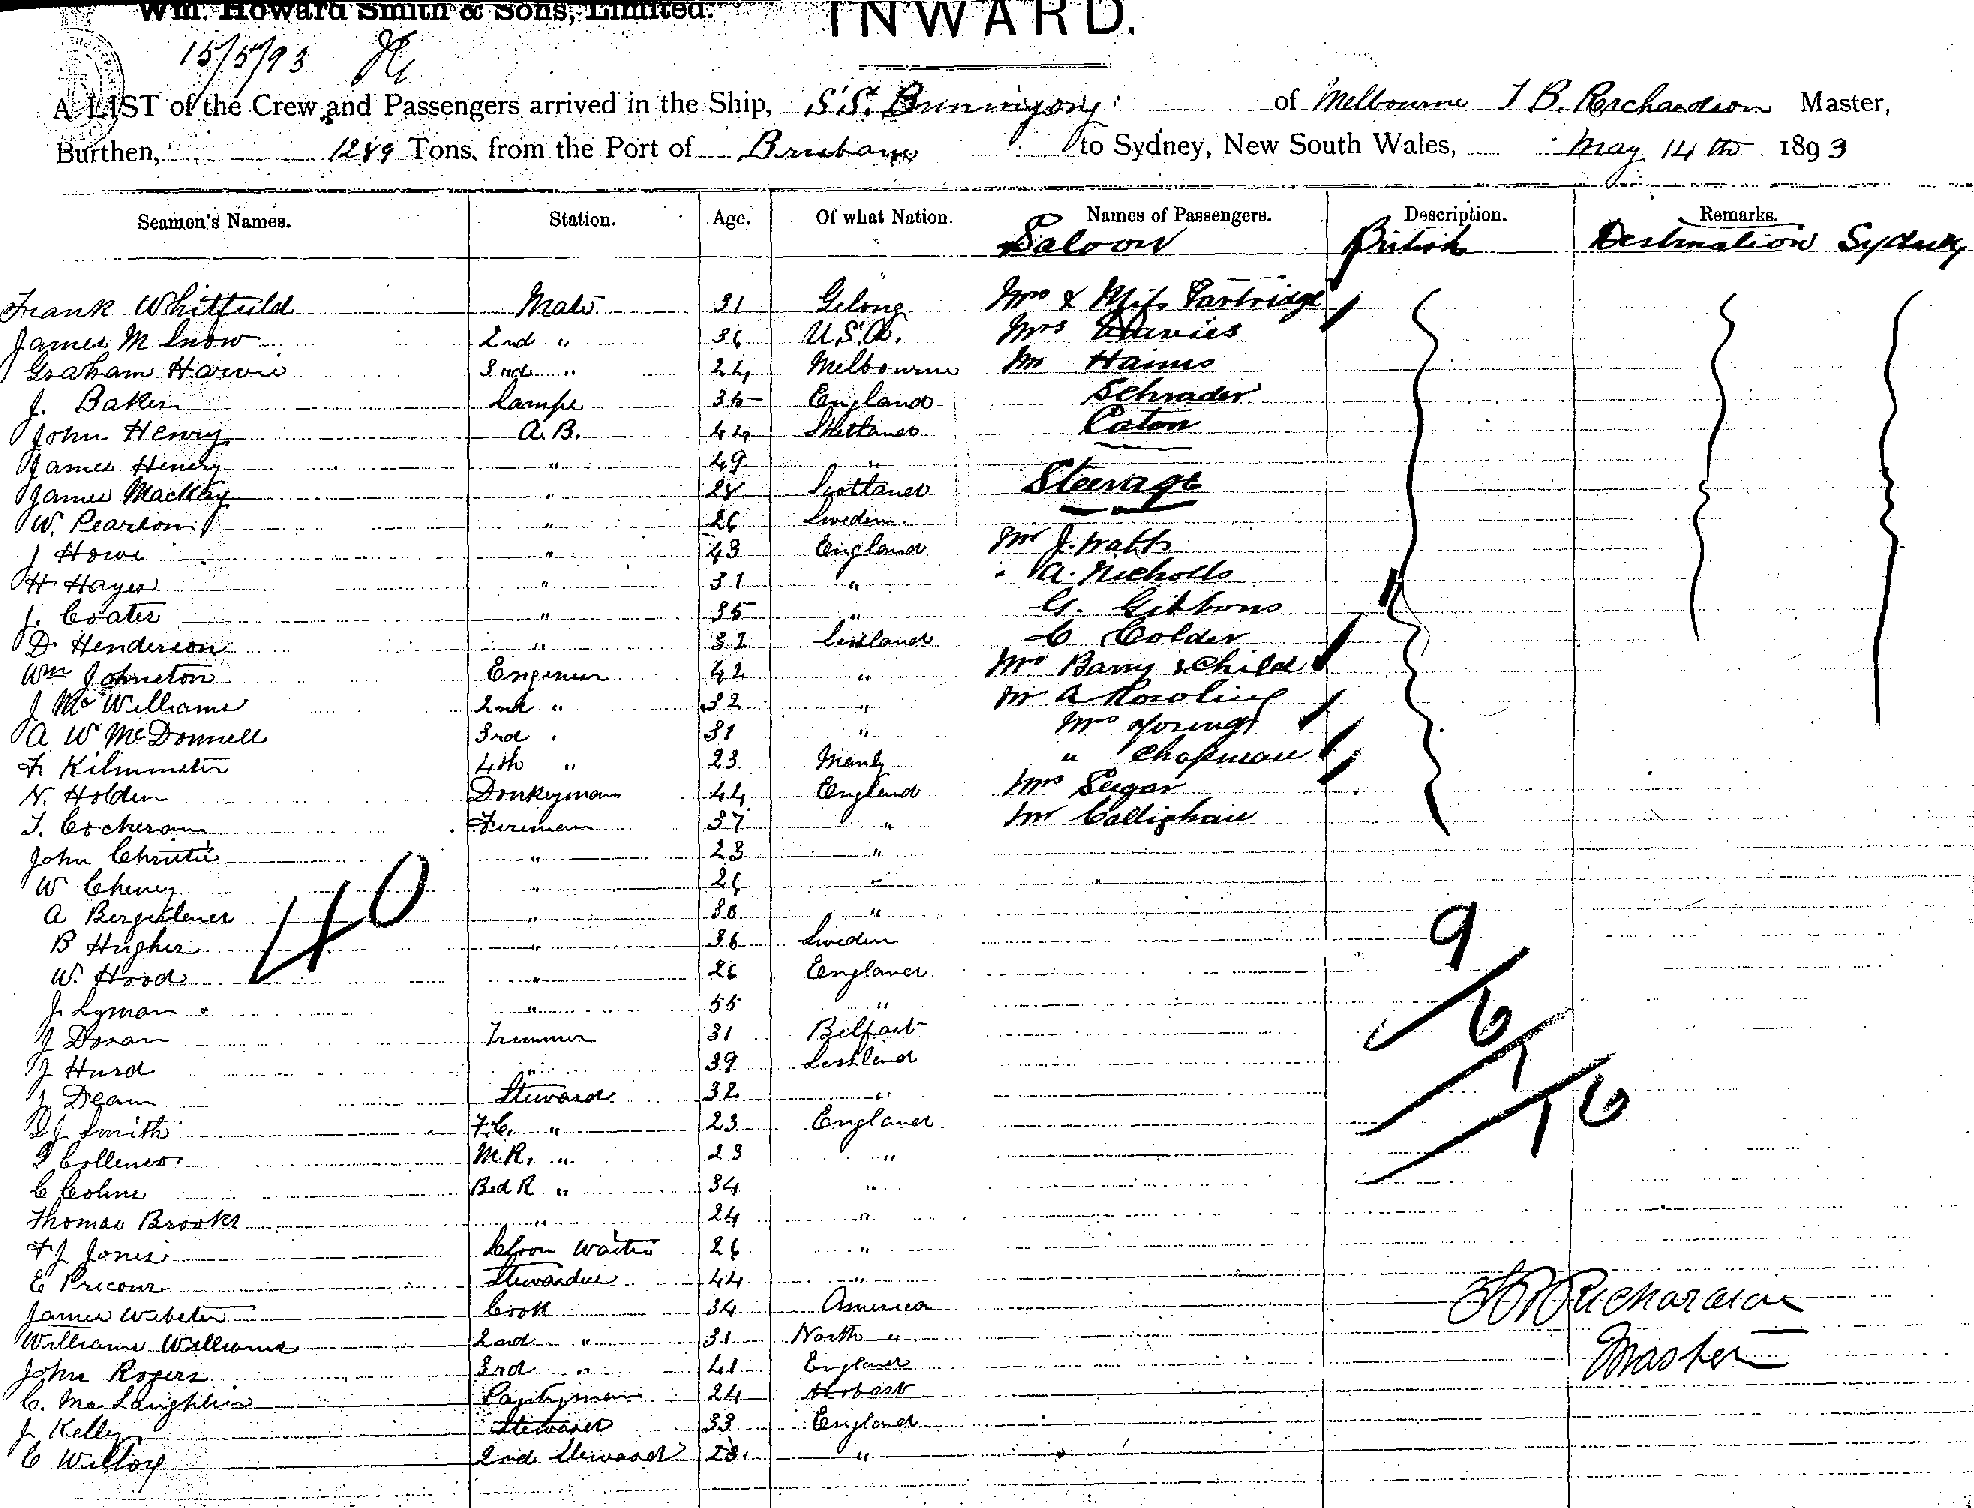 Wm. Howard Smith & Sons, Limited.
INWARD.
15/5/93
A LIST of the Crew and Passengers arrived in the Ship, S.S. Buninyong of Melbourne T B. Richardson Master,
Burthen, 1289 Tons, from the Port of Brisbane to Sydney, New South Wales, May 14th 1893
Seamen's Names. Station. Age. Of what Nation. Names of Passengers. Description. Remarks.
Saloon British Destination Sydney
Frank Whitfield Mate 31 Gelong Mrs & Miss Partridge
James M Snow 2nd " 36 U.S.A. Mrs Davies
Graham Harvie 3rd " 24 Melbourne Mr Haines
J. Baker Lamps 35 England Schrader
John Henry A.B. 44 Shetland Eaton
James Henry " 49 "
James Mackay " 28 Scotland Steerage
W. Pearson " 26 Sweden
J Howe " 43 England Mr J. Watts
H Hayes " 31 " A. Nicholls
J. Coates " 35 " G. Gibbons
D. Henderson " 32 Scotland C Colder
Wm Johnston Engineer 42 " Mrs Barry & Child
J McWilliams 2nd " 32 " Mr A Rowling
A W McDonnell 3rd " 31 " Mrs Young
F Kilminster 4th " 23 Manly " Chapman
N. Holden Donkeyman 44 England Mrs Sugar
T. Cockeram Fireman 37 " Mr Callighan
John Christie " 23 "
W Cheney " 26 "
A " 30 "
B Hughes " 36 Sweden
W. Hood " 26 England
J. Lyman " 55 "
J Doran Trimmer 31 Belfast
J Hurd " 39 Scotland
J Deam Steward 32 "
Smith F.C. " 23 England
Collins M.R. " 23 "
C Colins Bed R " 34 "
Thomas Brooks " 24 "
F J Jones Saloon Waiter 26 "
E Precour Stewardess 44 "
James Webster Cook 34 America
William Williams 2nd " 31 North "
John Rogers 3rd " 41 England
C. McLaughlin Pantryman 24 Hobart
J Kelly Steward 33 England
C Willox 2nd Steward 28 "
40
9
6
1
16
T B Richardson
Master